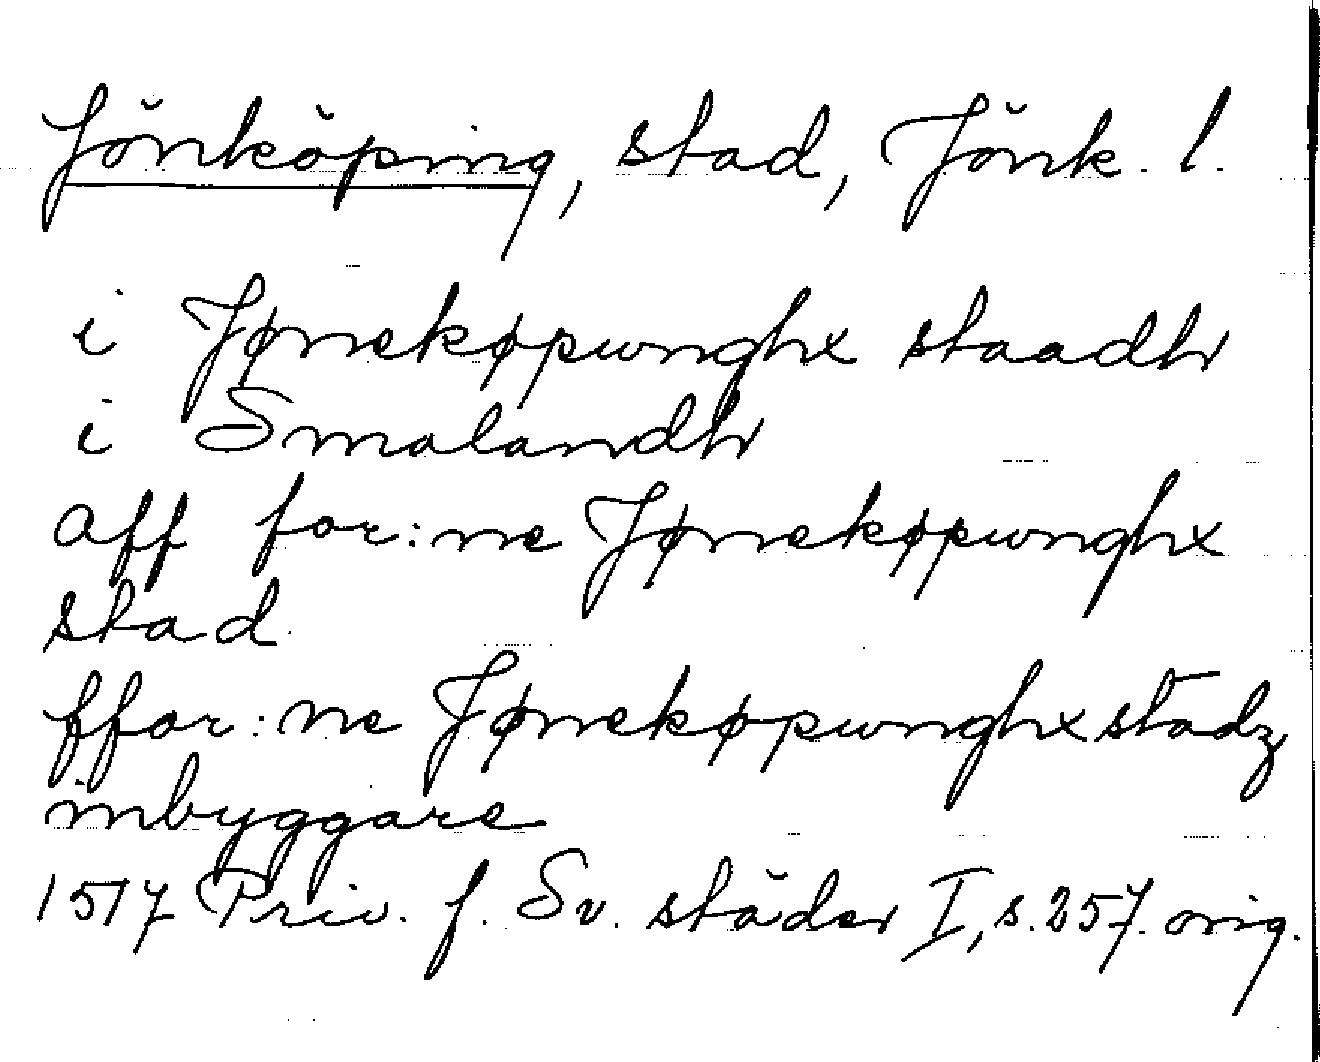 Jönköping, stad, Jönk. l.
i Jønekøpwnghx staadh
i Smalandh
aff for:ne Jønekøpwnghx
stad
ffor:ne Jønekøpwnghx stadz
inbyggare
1517 Priv. f. Sv. städer I, s. 257. orig.